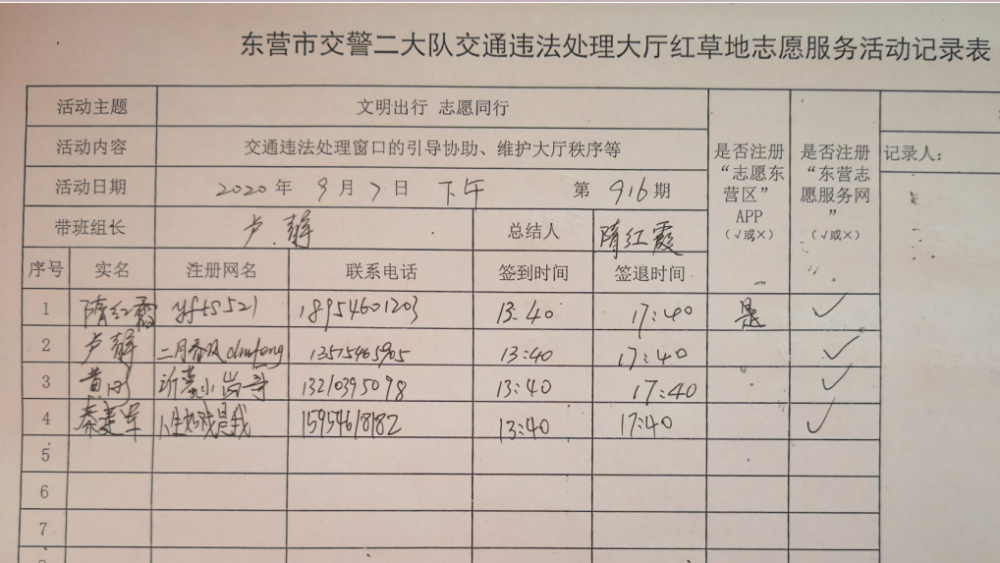 东营市交警二大队交通违法处理大厅红草地志愿服务活动记录表
活动主题 文明出行 志愿同行
活动内容 交通违法处理窗口的引导协助、维护大厅秩序等
是否注册“志愿东营区”APP（√或×）
是否注册“东营志愿服务网”（√或×）
记录人：
活动日期 2020年9月7日 下午 第916期
带班组长 卢静 总结人 隋红霞
序号 实名 注册网名 联系电话 签到时间 签退时间
1 隋红霞 yfts521 18954601203 13:40 17:40 是 √
2 卢静 二月春风 13:40 17:40 √
3 黄 沂蒙小 13210395098 13:40 17:40 √
4 秦建军 15954618182 13:40 17:40 √
5
6
7